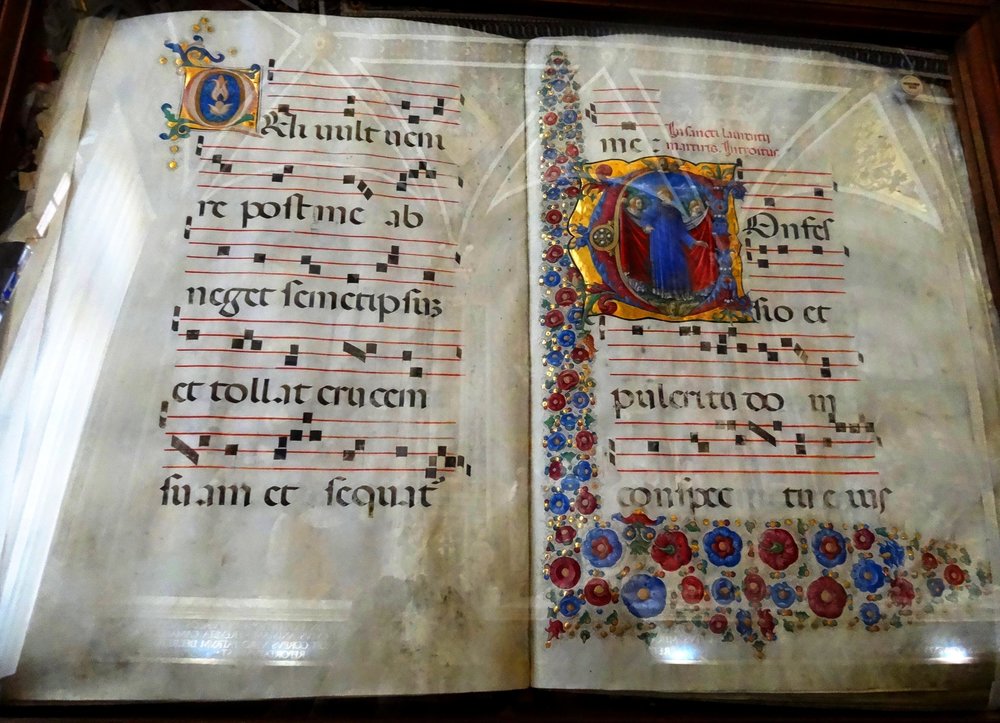 Qui vult veni
re post me ab
neget semetipsuz
et tollat crucem
suam et sequat
me:
In sancti laurentij
martiris. Introitus.
Confes
sio et
pulcritudo in
conspec tu eius